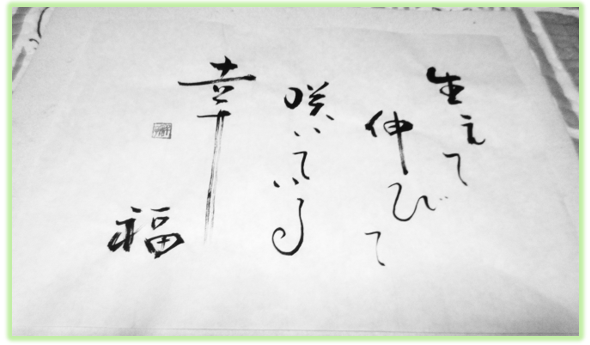 生えて
伸びて
咲いている
幸
福